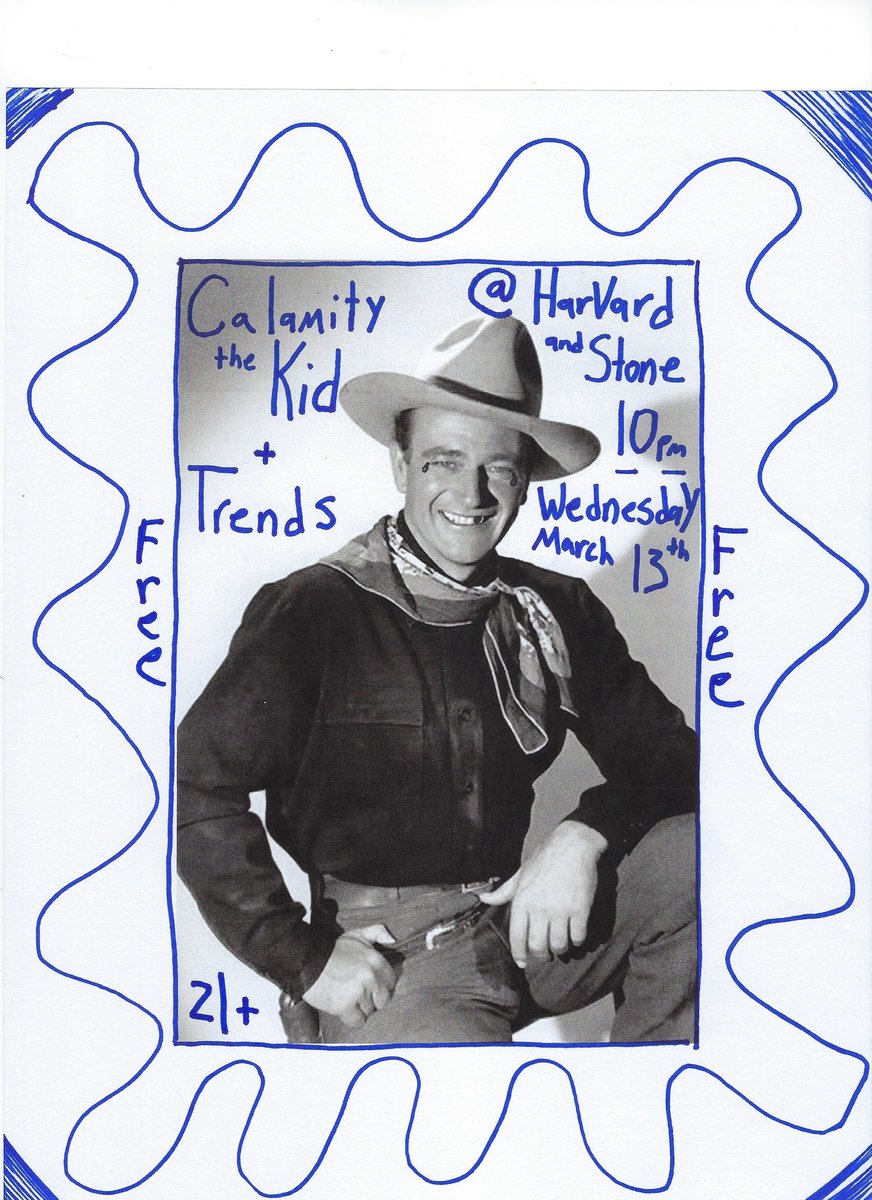 Calamity
the Kid
+
Trends
@ Harvard
and Stone
10pm
Wednesday
March 13th
Free
Free
21+